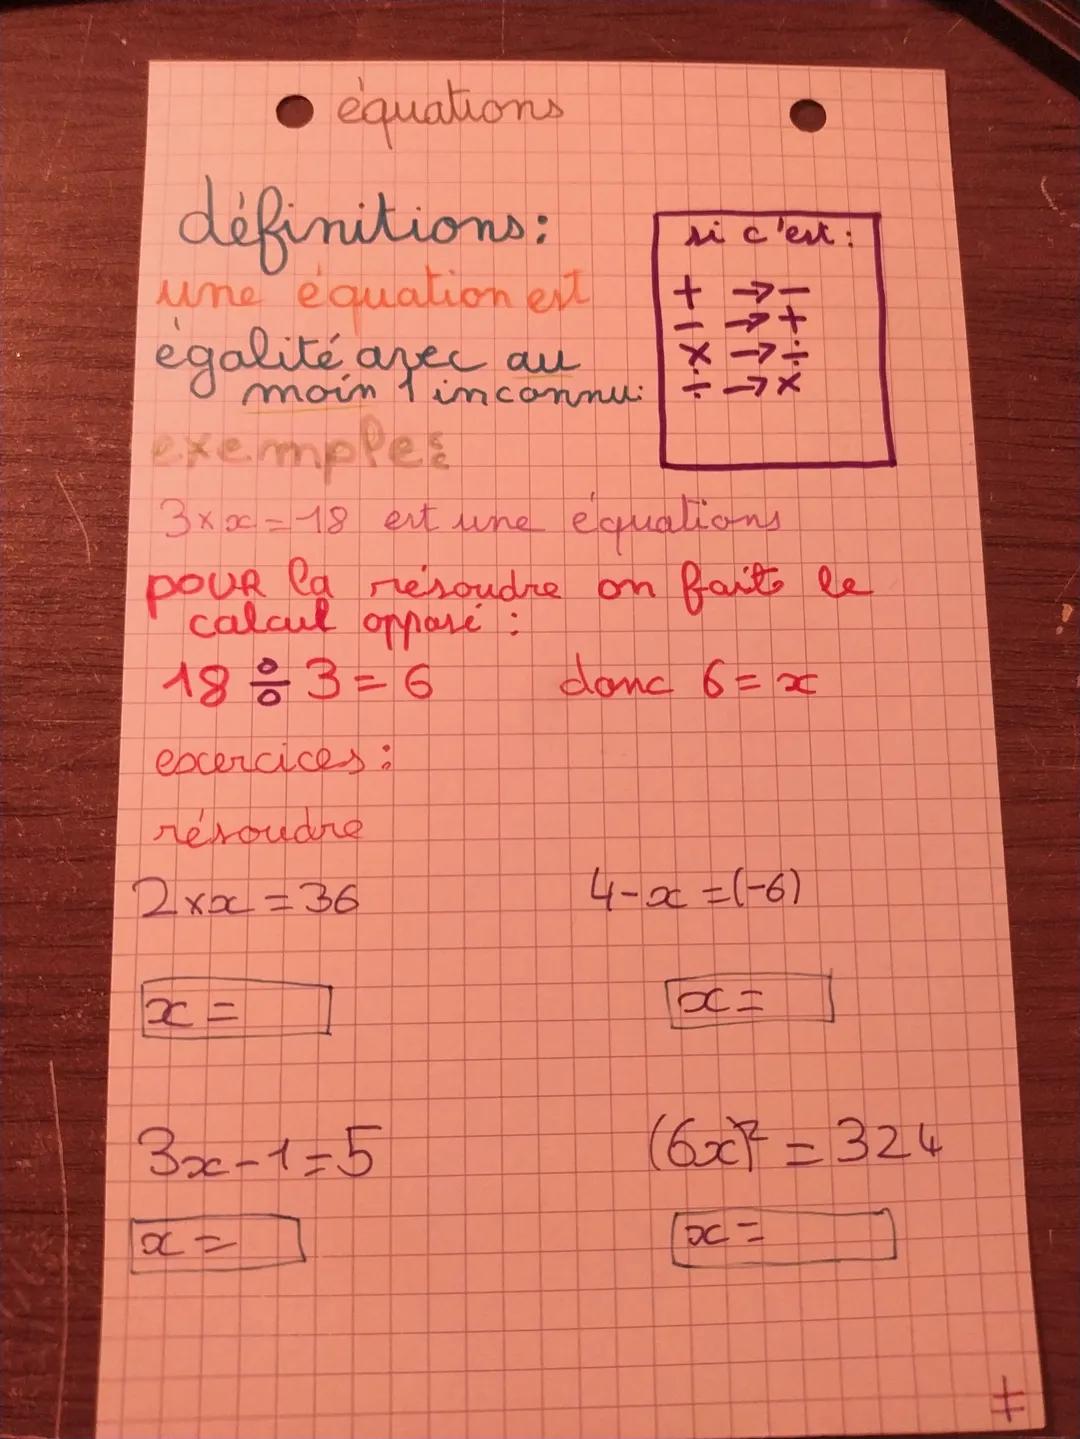 équations
définitions:
une équation est
égalité avec au
moin 1 inconnu:
si c'est:
+ → -
- → +
× → ÷
÷ → ×
exemple:
3 × x = 18 est une équations
pour la résoudre on faits le
calcul opposé:
18 ÷ 3 = 6 donc 6 = x
exercices:
résoudre
2 × x = 36 4 - x = (-6)
x = x =
3x - 1 = 5 (6x)² = 324
x = x =